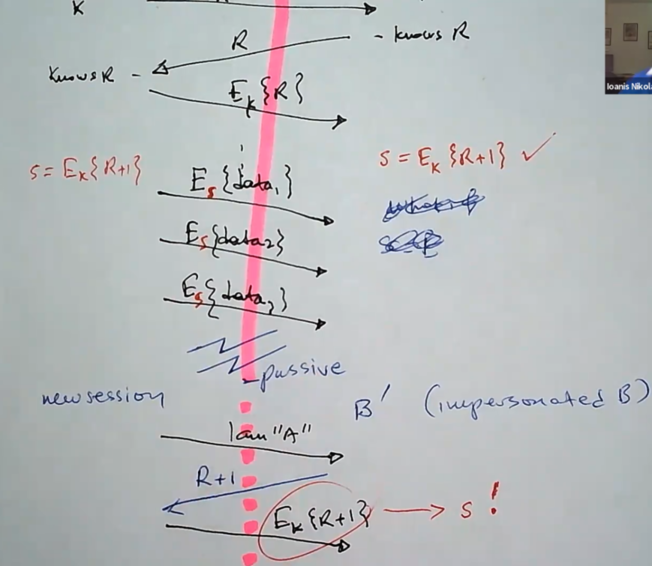 K
R - knows R
knows R -
E_K{R}
S = E_K{R+1} S = E_K{R+1} ✓
E_S{data_1}
E_S{data_2}
E_S{data_3}
- passive
new session B' (impersonated B)
I am "A"
R+1
E_K{R+1} → S!
Ioanis Nikola